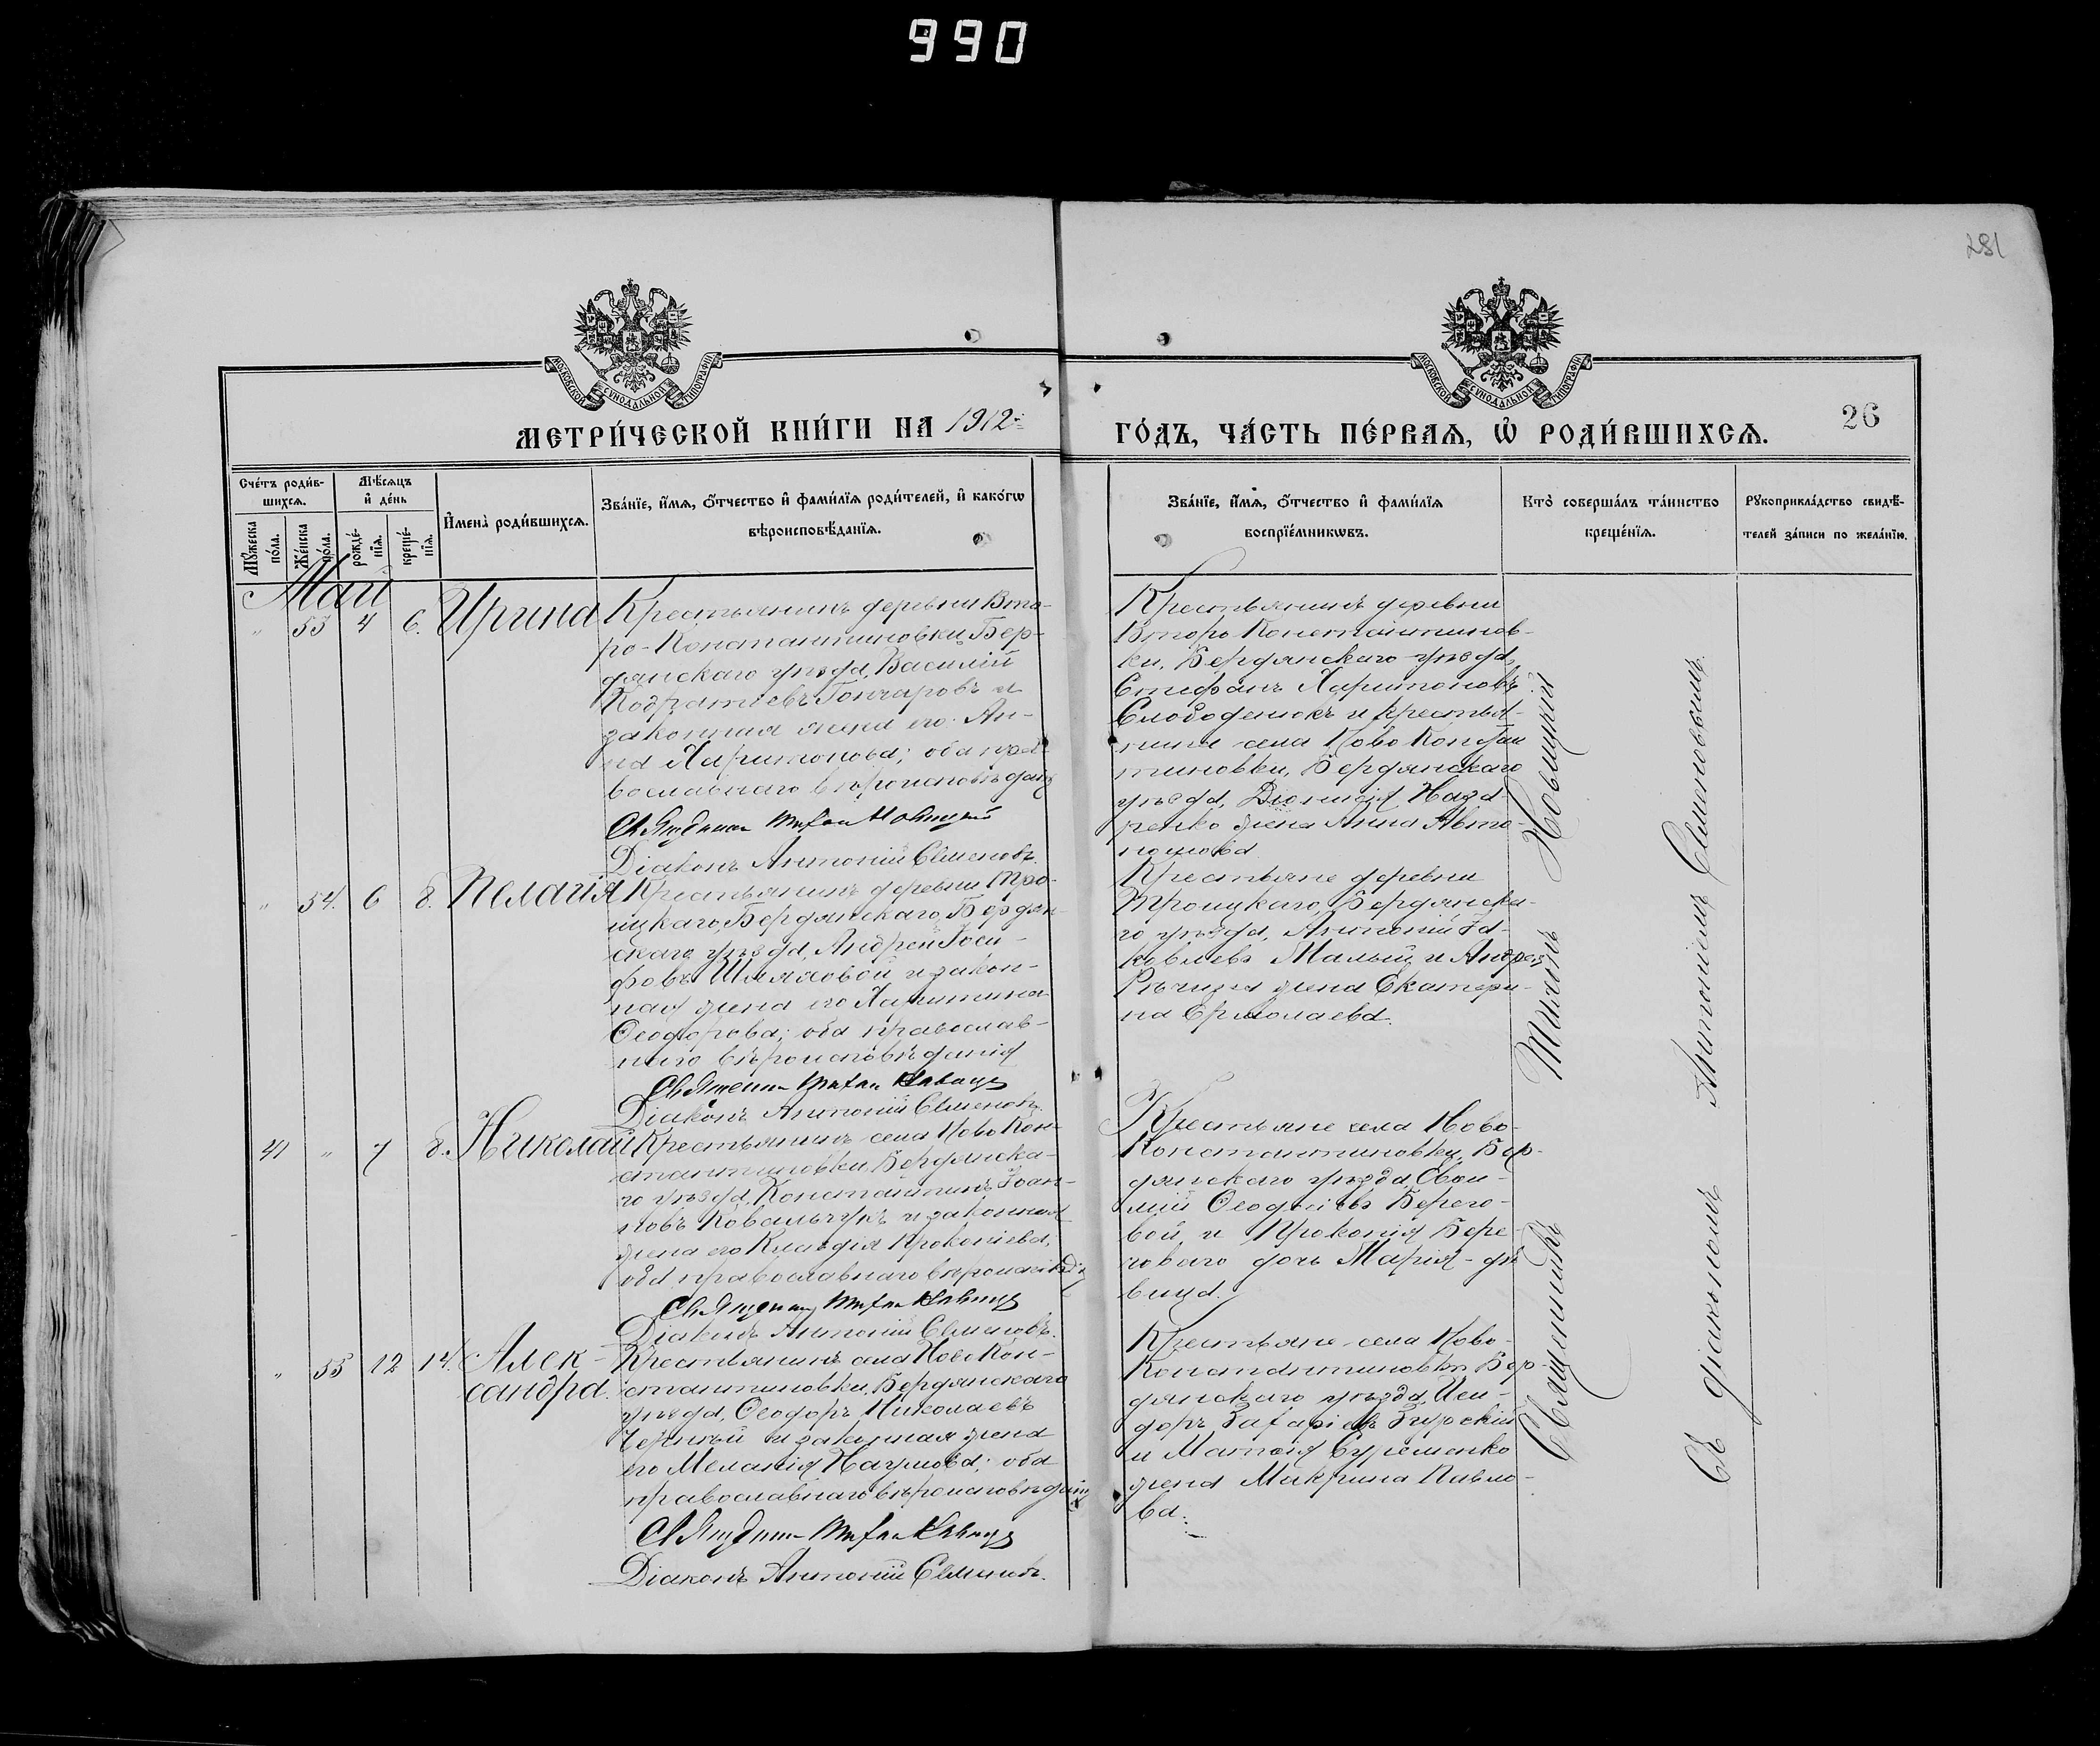 990
281
МОСКОВСКОЙ СѴНОДАЛЬНОЙ ТИПОГРАФІИ
МОСКОВСКОЙ СѴНОДАЛЬНОЙ ТИПОГРАФІИ
МЕТРИ́ЧЕСКОЙ КНИ́ГИ НА 1912
ГО́ДЪ, ЧА́СТЬ ПЕ́РВАѦ, Ѽ РОДИ́ВШИХСѦ.
26
Сче́тъ роди́в-
шихсѧ.
Мꙋжеска по́ла.
Же́нска по́ла.
Мѣ́сѧцъ
и҆ де́нь
рожде́-
нїѧ.
креще́-
нїѧ.
И҆мена̀ роди́вшихсѧ.
Зва́нїе, и҆́мѧ, ѻ҆́тчество и҆ фами́лїѧ роди́телей, и҆ како́гѡ
вѣроисповѣ́данїѧ.
Зва́нїе, и҆́мѧ, ѻ҆́тчество и҆ фами́лїѧ
воспрїе́мникѡвъ.
Кто̀ соверша́лъ та́инство
креще́нїѧ.
Рꙋкоприкла́дство свидѣ́-
телей за́писи по жела́нїю.
Май
" 53 4 6. Ирина
Крестьянинъ деревни Вто-
ро-Константиновки, Бер-
дянскаго уѣзда, Василій
Кодратіевъ Гончаровъ и
законная жена его Ан-
на Харитонова; оба пра-
вославнаго вѣроисповѣданія
Священникъ Тихонъ Новицкій
Діаконъ Антоній Семеновъ.
Крестьянинъ деревни
Второ Константинов-
ки, Бердянскаго уѣзда,
Стефанъ Харитоновъ
Слободенюкъ и крестья-
нина села Ново Констан
тиновки, Бердянскаго
уѣзда, Діонисія Наза-
ренко жена Анна Авто-
номова
" 54. 6 8. Пелагія
Крестьянинъ деревни Тро-
ицкаго, Бердянскаго, Бердян-
скаго уѣзда, Андрей Іоси-
фовъ Шляховой и закон-
ная жена его Харитина
Ѳеодорова; оба православ-
наго вѣроисповѣданія
Священникъ Тихонъ Новицкій
Діаконъ Антоній Семеновъ.
Крестьяне деревни
Троицкаго, Бердянска-
го уѣзда, Антоній Іа-
ковлевъ Малый и Андрея
жена Екатери-
на Ермолаева.
41 " 7 8. Николай
Крестьянинъ села Ново Кон-
стантиновки, Бердянска-
го уѣзда, Константинъ Іоан-
новъ Ковальчукъ и законная
жена его Клавдія Прокопіева,
оба православнаго
Священникъ Тихонъ Новицкій
Діаконъ Антоній Семеновъ.
Крестьяне села Ново-
Константиновки, Бер-
дянскаго уѣзда,
Берего-
вой, и Прокопія Бере-
говаго дочь Марія - дѣ
вица.
" 55 12 14. Алек-
сандра.
Крестьянинъ села Ново Кон-
стантиновки, Бердянскаго
уѣзда, Ѳеодоръ Николаевъ
Черный и законная жена
его Меланія Наумова; оба
православнаго вѣроисповѣданія
Священникъ Тихонъ Новицкій
Діаконъ Антоній Семеновъ.
Крестьяне села Ново-
Константиновки Бер-
дянскаго уѣзда, Иси-
доръ Захаріевъ
и Матѳія
жена Макрина Павло-
ва.
Священникъ Тихонъ Новицкій
Съ діакономъ Антоніемъ Семеновымъ.